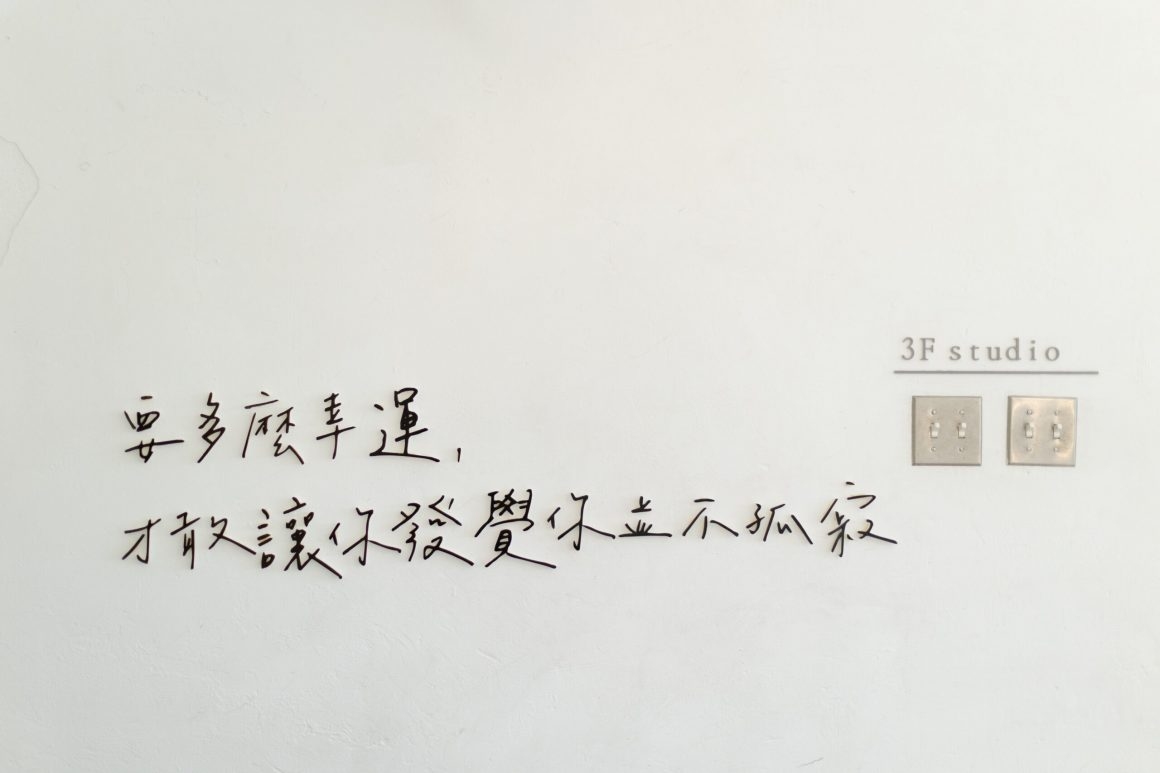 3F studio
要多麼幸運，
才敢讓你發覺你並不孤寂